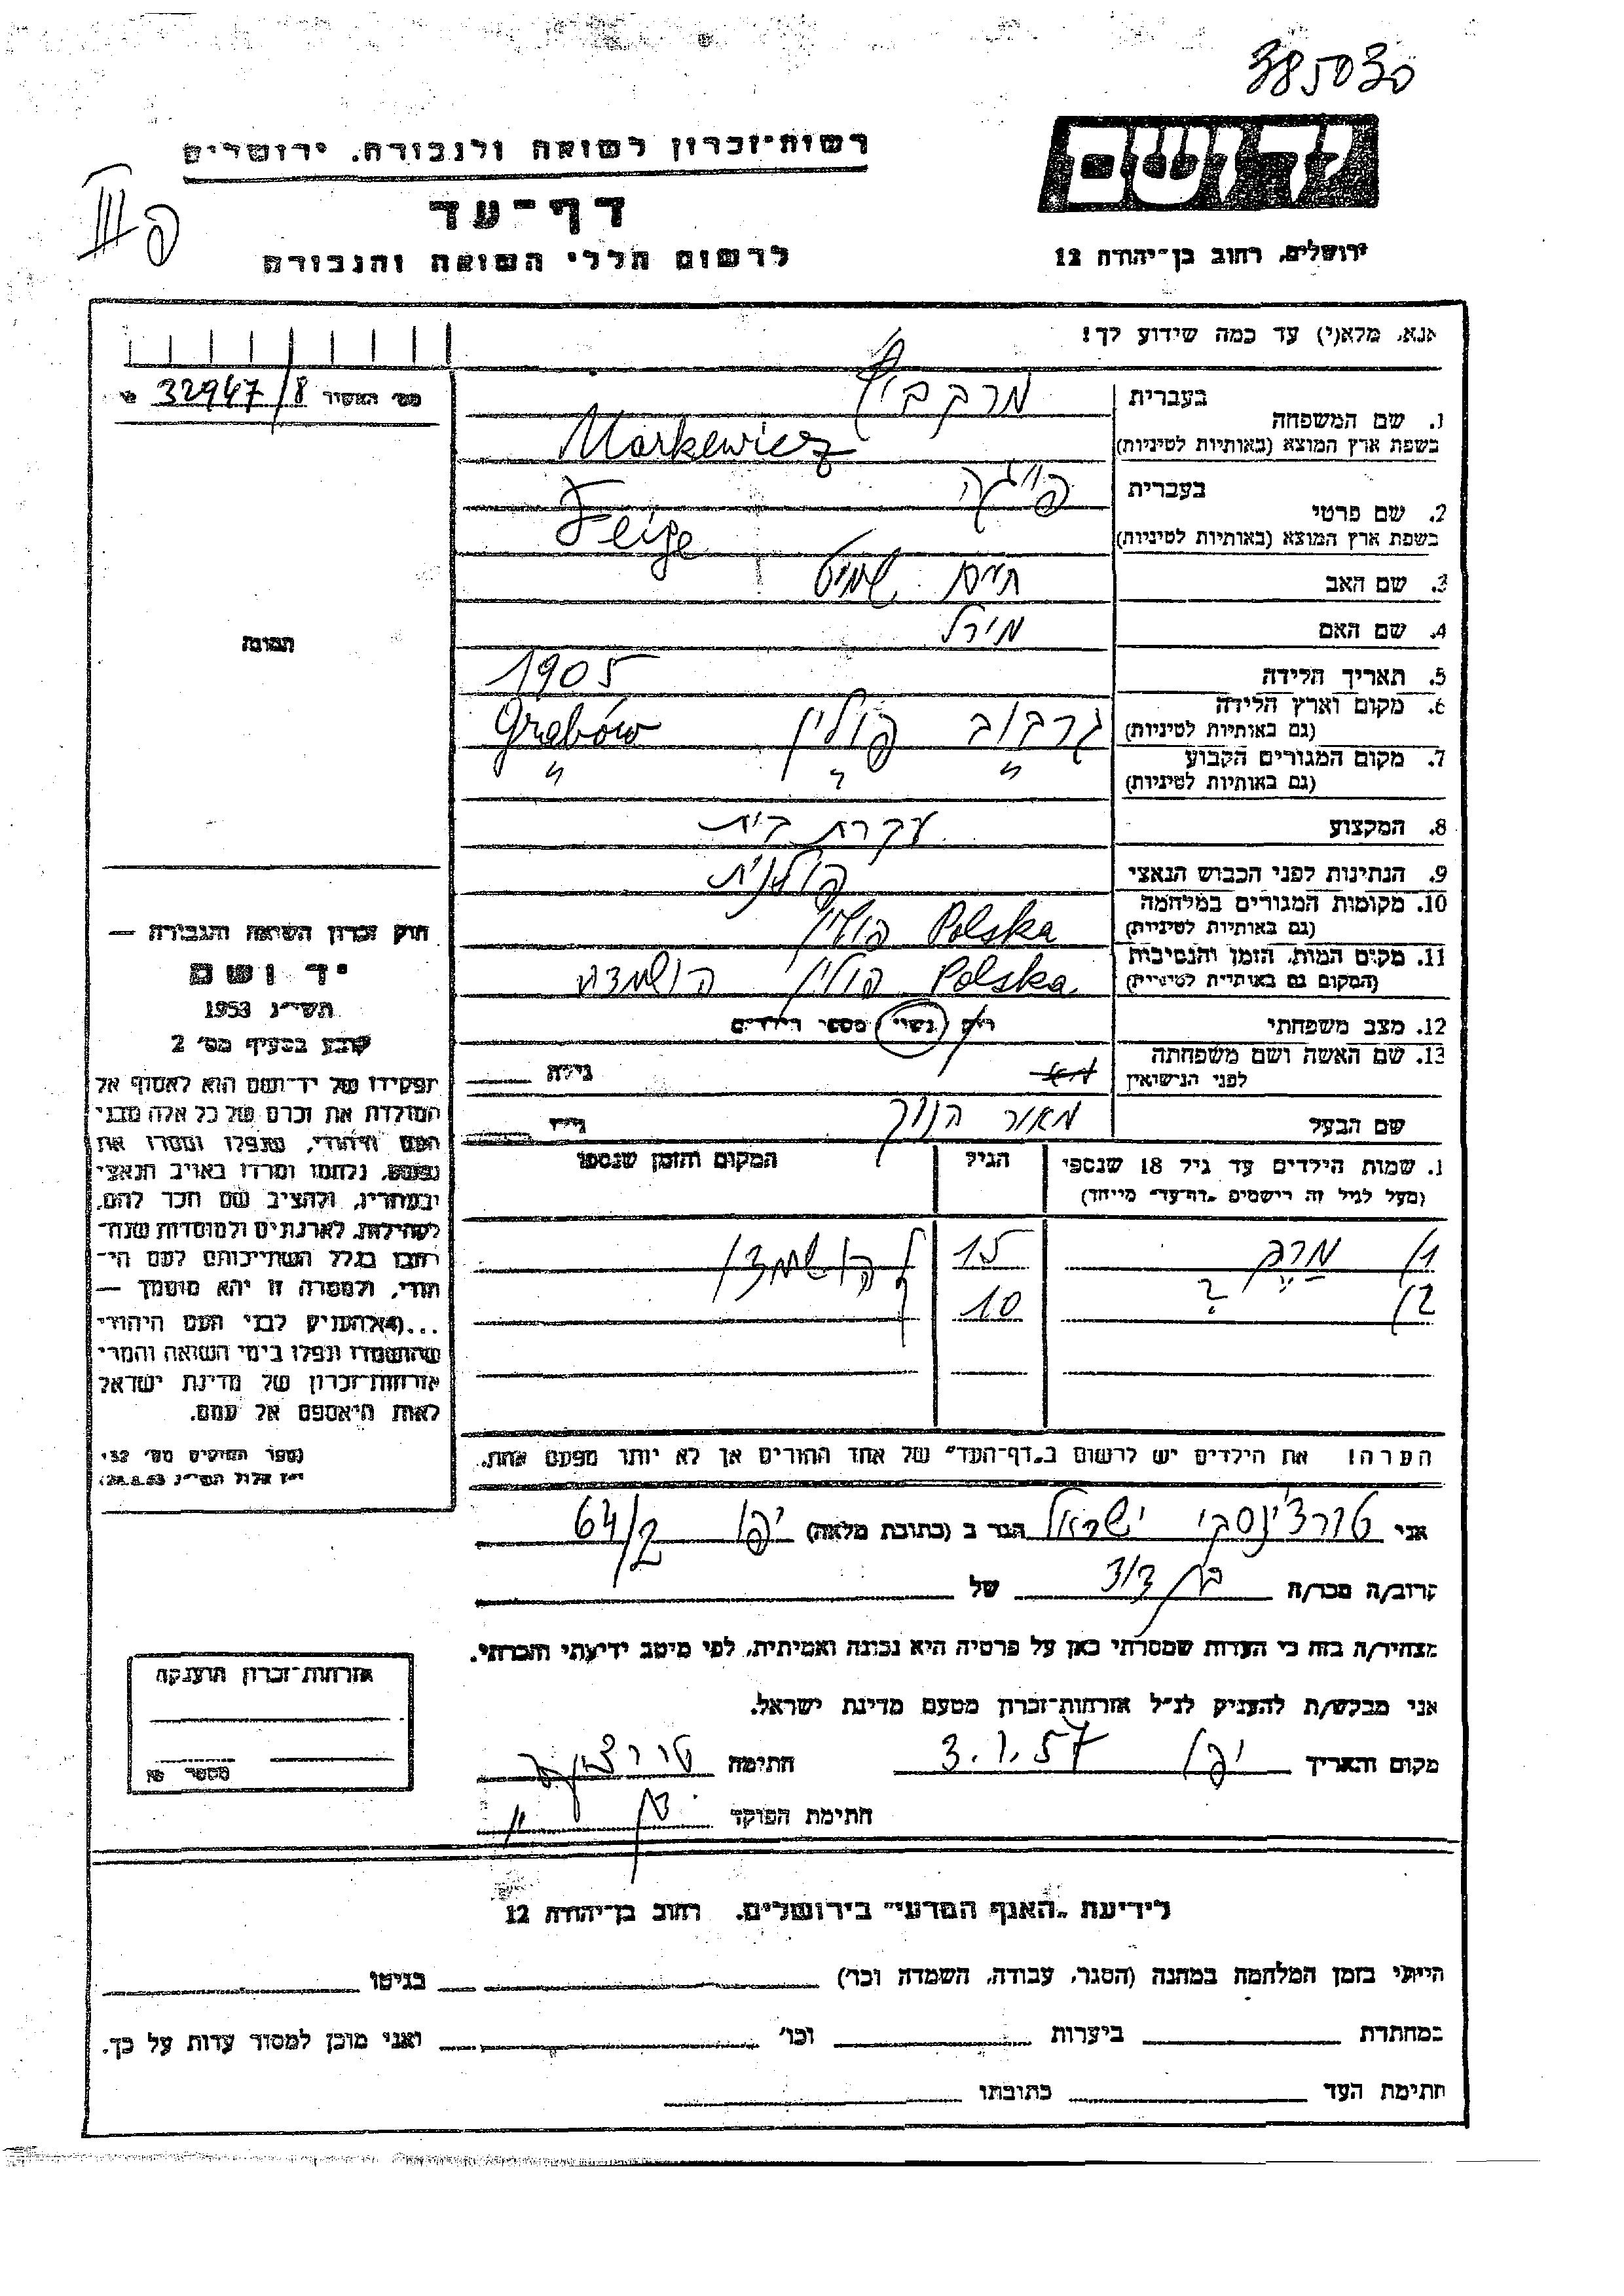 385030
יד ושם
רשות־זכרון לשואה ולגבורה, ירושלים
דף־עד
לרשום חללי השואה והגבורה
ירושלים, רחוב בן־יהודה 12
אנא, מלא(י) עד כמה שידוע לך!
מס׳ האשיר 32947/8
1. שם המשפחה
בעברית
בשפת ארץ המוצא (באותיות לטיניות) Markewicz
2. שם פרטי
בעברית פייגה
בשפת ארץ המוצא (באותיות לטיניות) Feige
3. שם האב חיים
4. שם האם מירל
5. תאריך הלידה 1905
6. מקום וארץ הלידה
(גם באותיות לטיניות) גרבוב פולין Grabów
7. מקום המגורים הקבוע
(גם באותיות לטיניות) " " "
8. המקצוע עקרת בית
9. הנתינות לפני הכבוש הנאצי פולנית
10. מקומות המגורים במלחמה
(גם באותיות לטיניות) Polska פולין
11. מקום המות, הזמן והנסיבות
(המקום גם באותיות לטיניות) Polska פולין הושמדה
12. מצב משפחתי רוק נשוי מספר הילדים
13. שם האשה ושם משפחתה
לפני הנישואין גילה
שם הבעל מאור הנוך גילו
1. שמות הילדים עד גיל 18 שנספו
(מעל לגיל זה רישמים „דף־עד״ מייחד)
הגיל
המקום והזמן שנספו
1) 15 הושמדו
2) ? 10
הערה! את הילדים יש לרשום ב„דף־העד״ של אחד ההורים אך לא יותר מפעם אחת.
תמונה
חוק זכרון השואה והגבורה —
יד ושם
תשי״ג 1953
קובע בסעיף מס׳ 2
תפקידו של יד־ושם הוא לאסוף אל
המולדת את זכרם של כל אלה מבני
העם היהודי, שנפלו ומסרו את
נפשם, נלחמו ומרדו באויב הנאצי
ובעוזריו, ולהציב שם וזכר להם,
לקהילות, לארגונים ולמוסדות שנח־
רבו בגלל השתייכותם לעם הי־
הודי, ולמטרה זו יהא מוסמך —
...(4) להעניק לבני העם היהודי
שהושמדו ונפלו בימי השואה והמרי
אזרחות־זכרון של מדינת ישראל
לאות היאספם אל עמם.
(ספר החוקים מס׳ 132
י״ז אלול תשי״ג 28.8.53)
אני טורצ'ינסקי ישראל הגר ב (כתובת מלאה) יפו 64/2
קרוב/ה מכר/ה בן דוד של
מצהיר/ה בזה כי העדות שמסרתי כאן על פרטיה היא נכונה ואמיתית, לפי מיטב ידיעתי והכרתי.
אני מבקש/ת להעניק לנ״ל אזרחות־זכרון מטעם מדינת ישראל.
מקום ותאריך יפו 3.1.57 חתימה
חתימת הפוקד
אזרחות־זכרון הוענקה
מספר
לידיעת „האגף המדעי״ בירושלים, רחוב בן־יהודה 12
הייתי בזמן המלחמה במחנה (הסגר, עבודה, השמדה וכו׳) בגיטו
במחתרת ביערות וכו׳ ואני מוכן למסור עדות על כך.
חתימת העד כתובתו